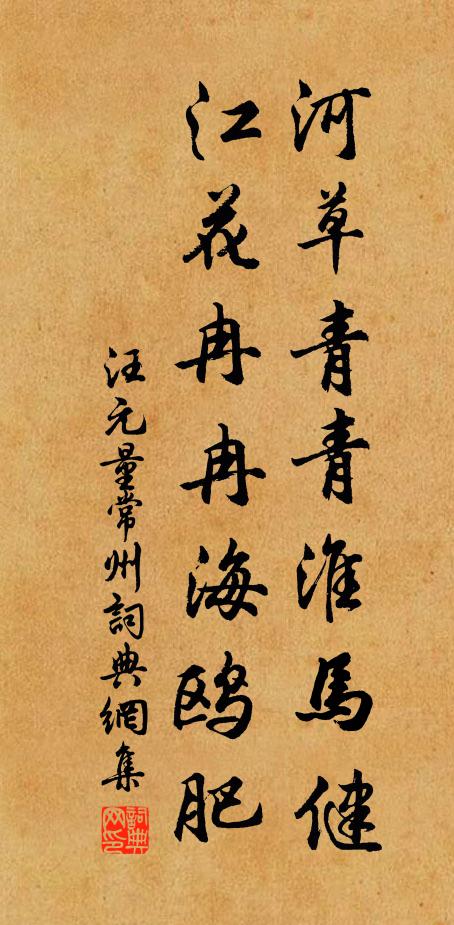 河草青青淮馬健
江花冉冉海鷗肥
汪元量常州詞典網集
詞典網印